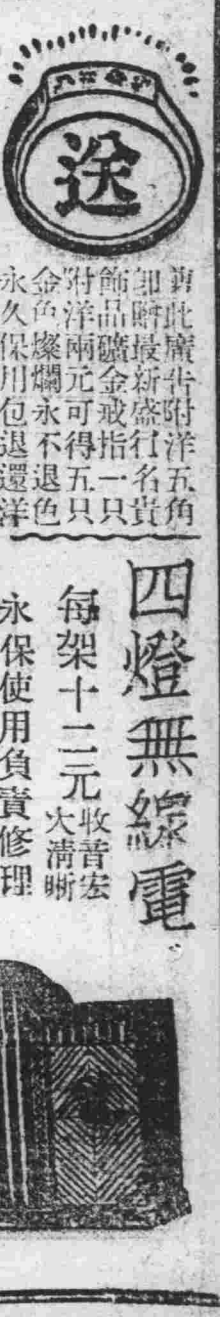 送
剪此廣告附洋五角
卽贈最新盛行名貴
飾品礦金戒指一只
附洋兩元可得五只
金色燦爛永不退色
永久保用包退還洋
四燈無線電
每架十二元
收音宏
大清晰
永保使用負責修理